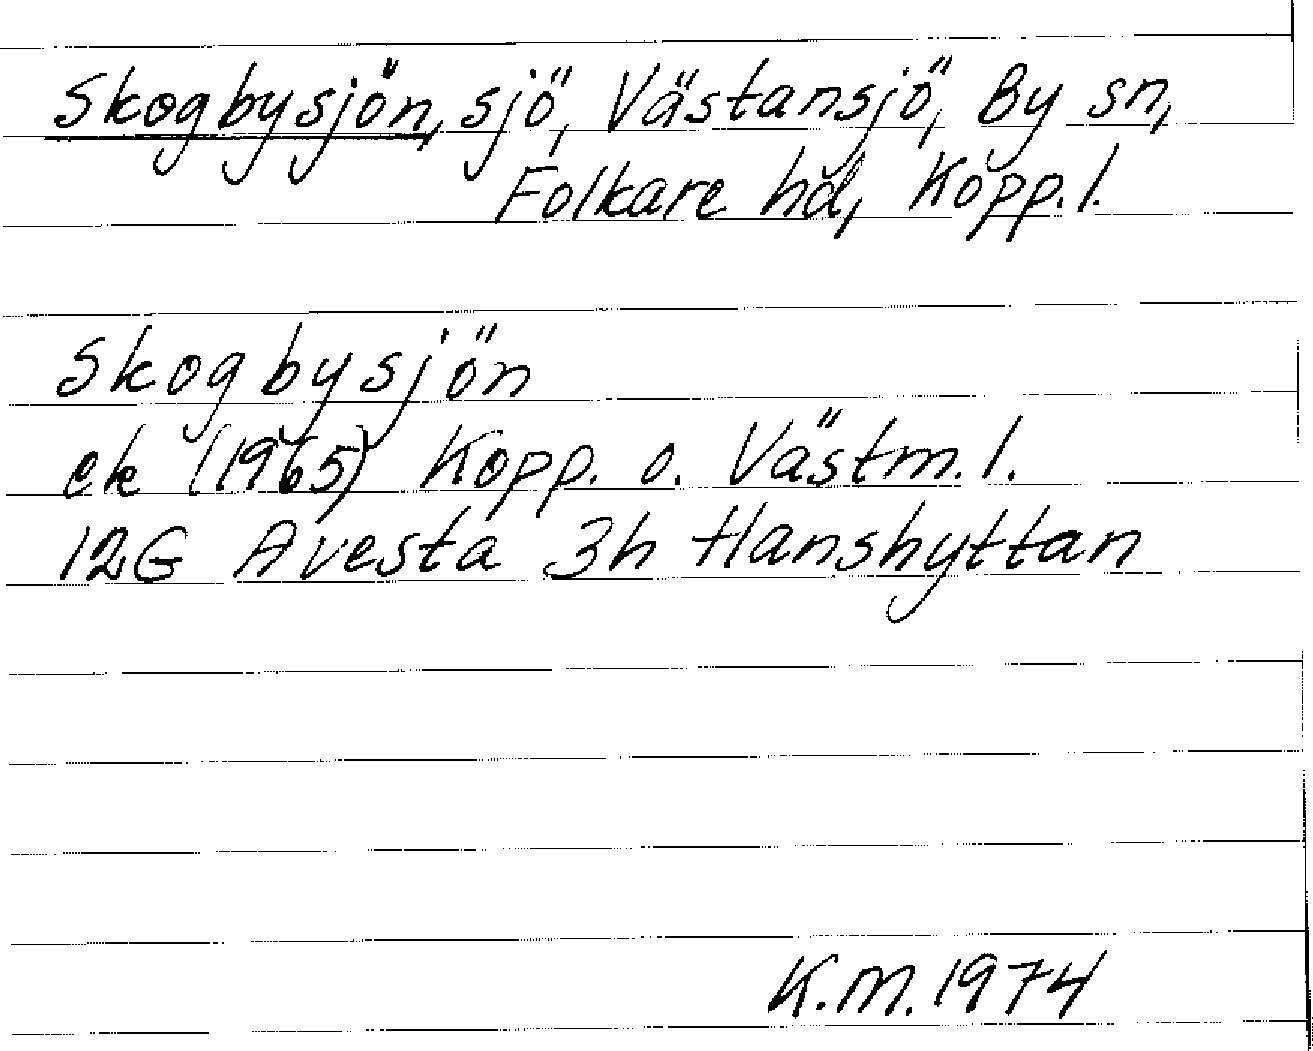 Skogbysjön, sjö, Västansjö, By sn,
Folkare hd, Kopp. l.
Skogbysjön
ek (1965) Kopp. o. Västm. l.
12G Avesta 3h Hanshyttan
K.M. 1974